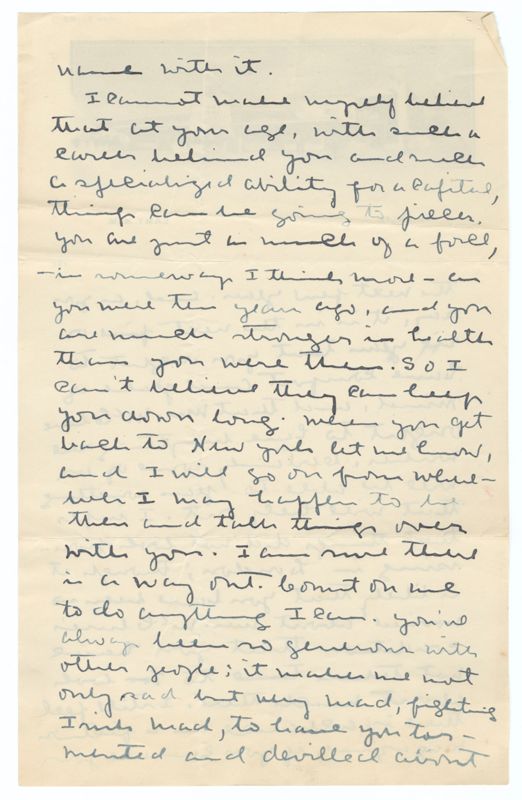 name with it.
I cannot make myself believe
that at your age, with such a
career behind you and such
a specialized ability for a capital,
things can be going to pieces.
You are just as much of a force,
—in some ways I think more— as
you were ten years ago, and you
are much stronger in health
than you were then. So I
can't believe they can keep
you down long. When you get
back to New York let me know,
and I will go on from where-
ever I may happen to be
then and talk things over
with you. I am sure there
is a way out. Count on me
to do anything I can. You've
always been so generous with
other people; it makes me not
only sad but very mad, fighting
Irish mad, to have you tor-
mented and devilled about